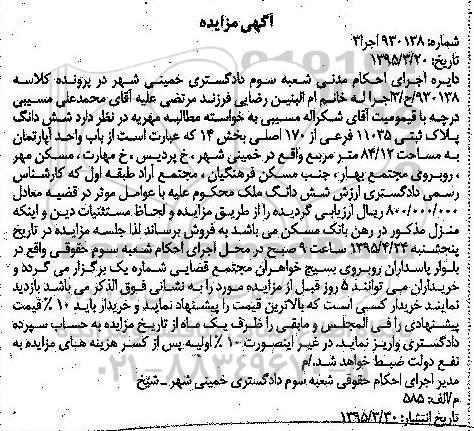 آگهی مزایده
شماره: ۹۳۰۱۳۸ اجرا۳
تاریخ: ۱۳۹۵/۳/۲۰
دایره اجرای احکام مدنی شعبه سوم دادگستری خمینی شهر در پرونده کلاسه
۹۳۰۱۳۸/ح/۳اجرا له خانم ام البنین رضایی فرزند مرتضی علیه آقای محمدعلی مسیبی
درچه با قیمومیت آقای شکراله مسیبی به خواسته مطالبه مهریه در نظر دارد شش دانگ
پلاک ثبتی ۱۱۰۳۵ فرعی از ۱۷۰ اصلی بخش ۱۴ که عبارت است از باب واحد آپارتمان
به مساحت ۸۴/۱۲ متر مربع واقع در خمینی شهر ، خ پردیس ، خ مهارت ، مسکن مهر
، روبروی مجتمع بهار ، جنب مسکن فرهنگیان ، مجتمع آراد طبقه اول که کارشناس
رسمی دادگستری ارزش شش دانگ ملک محکوم علیه با عوامل موثر در قضیه معادل
۸۰۰/۰۰۰/۰۰۰ ریال ارزیابی گردیده را از طریق مزایده و لحاظ مستثنیات دین و اینکه
منزل مذکور در رهن بانک مسکن می باشد به فروش برساند لذا جلسه مزایده در تاریخ
پنجشنبه ۱۳۹۵/۴/۲۴ ساعت ۹ صبح در محل اجرای احکام شعبه سوم حقوقی واقع در
بلوار پاسداران روبروی بسیج خواهران مجتمع قضایی شماره یک برگزار می گردد و
خریداران می توانند ۵ روز قبل از مزایده مورد را به نشانی فوق الذکر می باشد بازدید
نمایند خریدار کسی است که بالاترین قیمت را پیشنهاد نمایند و خریدار باید ۱۰ ٪ قیمت
پیشنهادی را فی المجلس و مابقی را ظرف یک ماه از تاریخ مزایده به حساب سپرده
دادگستری واریز نماید، در غیر اینصورت ۱۰ ٪ اولیه پس از کسر هزینه های مزایده به
نفع دولت ضبط خواهد شد.م/م
مدیر اجرای احکام حقوقی شعبه سوم دادگستری خمینی شهر ـ شیخ
م/الف: ۵۸۵
تاریخ انتشار: ۱۳۹۵/۳/۳۰